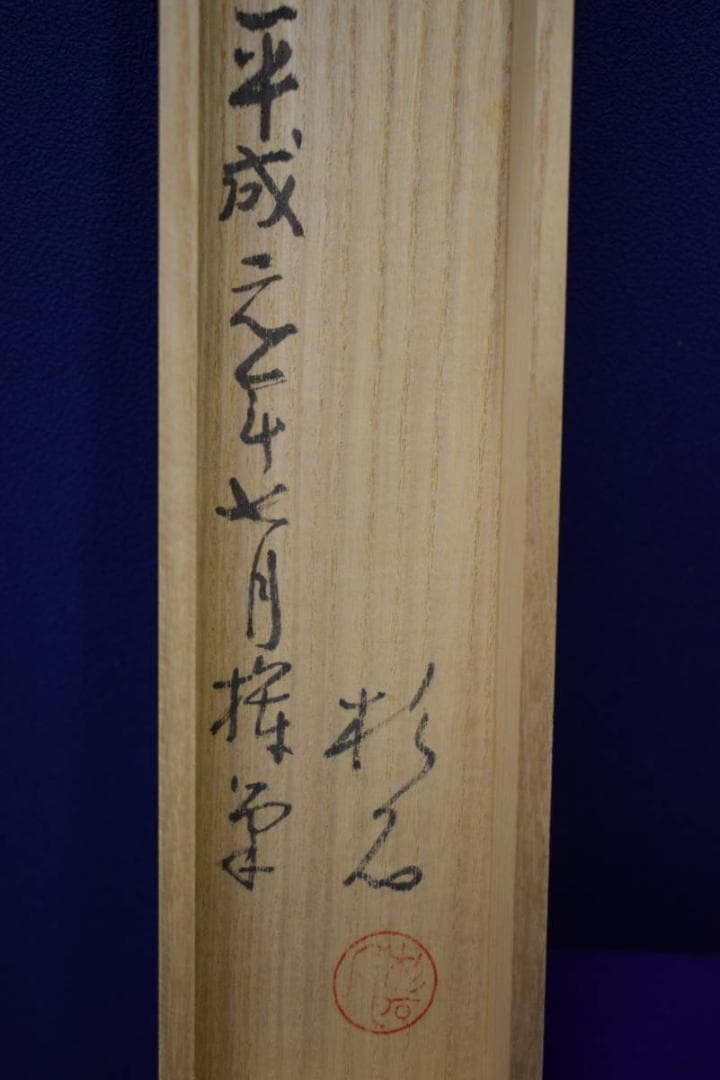 杉石
平成元年七月揮筆